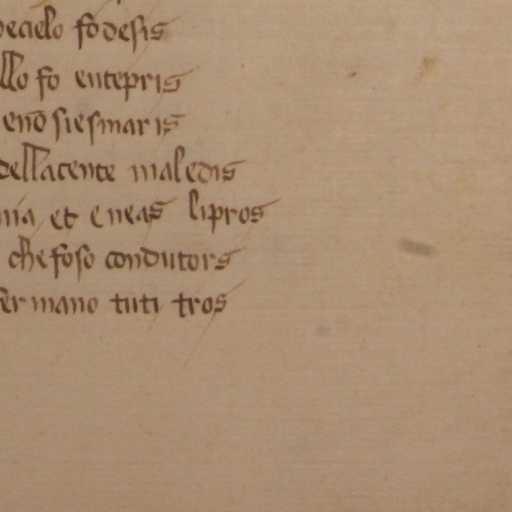 pecielo fo desis
llo fo entepris
enō siesmaris
dellacente maledis
nia et eneas lipros
che foso condutors
fermano tuti tros